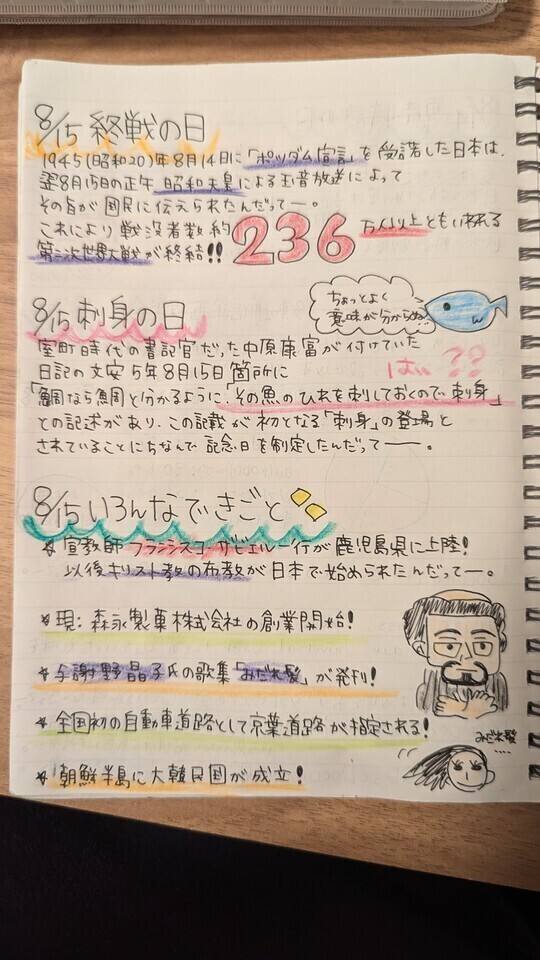 8/15 終戦の日
1945(昭和20)年8月14日に「ポツダム宣言」を受諾した日本は、
翌8月15日の正午 昭和天皇による玉音放送によって
その旨が国民に伝えられたんだってー。
これにより戦没者数約236万人以上ともいわれる
第二次世界大戦が終結!!
8/15 刺身の日
ちょっとよく
意味が分からぬ…
室町時代の書記官だった中原康富が付けていた
日記の文安5年8月15日箇所に
はい??
「鯛なら鯛と分かるように「その魚のひれを刺しておくので刺身」
との記述があり、この記載が初となる「刺身」の登場と
されていることにちなんで記念日を制定したんだってー。
8/15 いろんなできごと
★宣教師フランシスコ・ザビエル一行が鹿児島県に上陸!
以後キリスト教の布教が日本で始められたんだってー。
★現:森永製菓株式会社の創業開始!
★与謝野晶子氏の歌集「みだれ髪」が発刊!
★全国初の自動車道路として京葉道路が指定される!
みだれ髪
★朝鮮半島に大韓民国が成立!